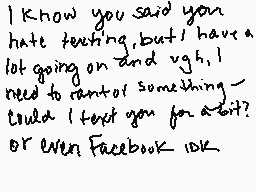 I know you said you
hate texting, but I have a
lot going on and ugh, I
need to rant or something -
could I text you for a bit?
or even Facebook IDK